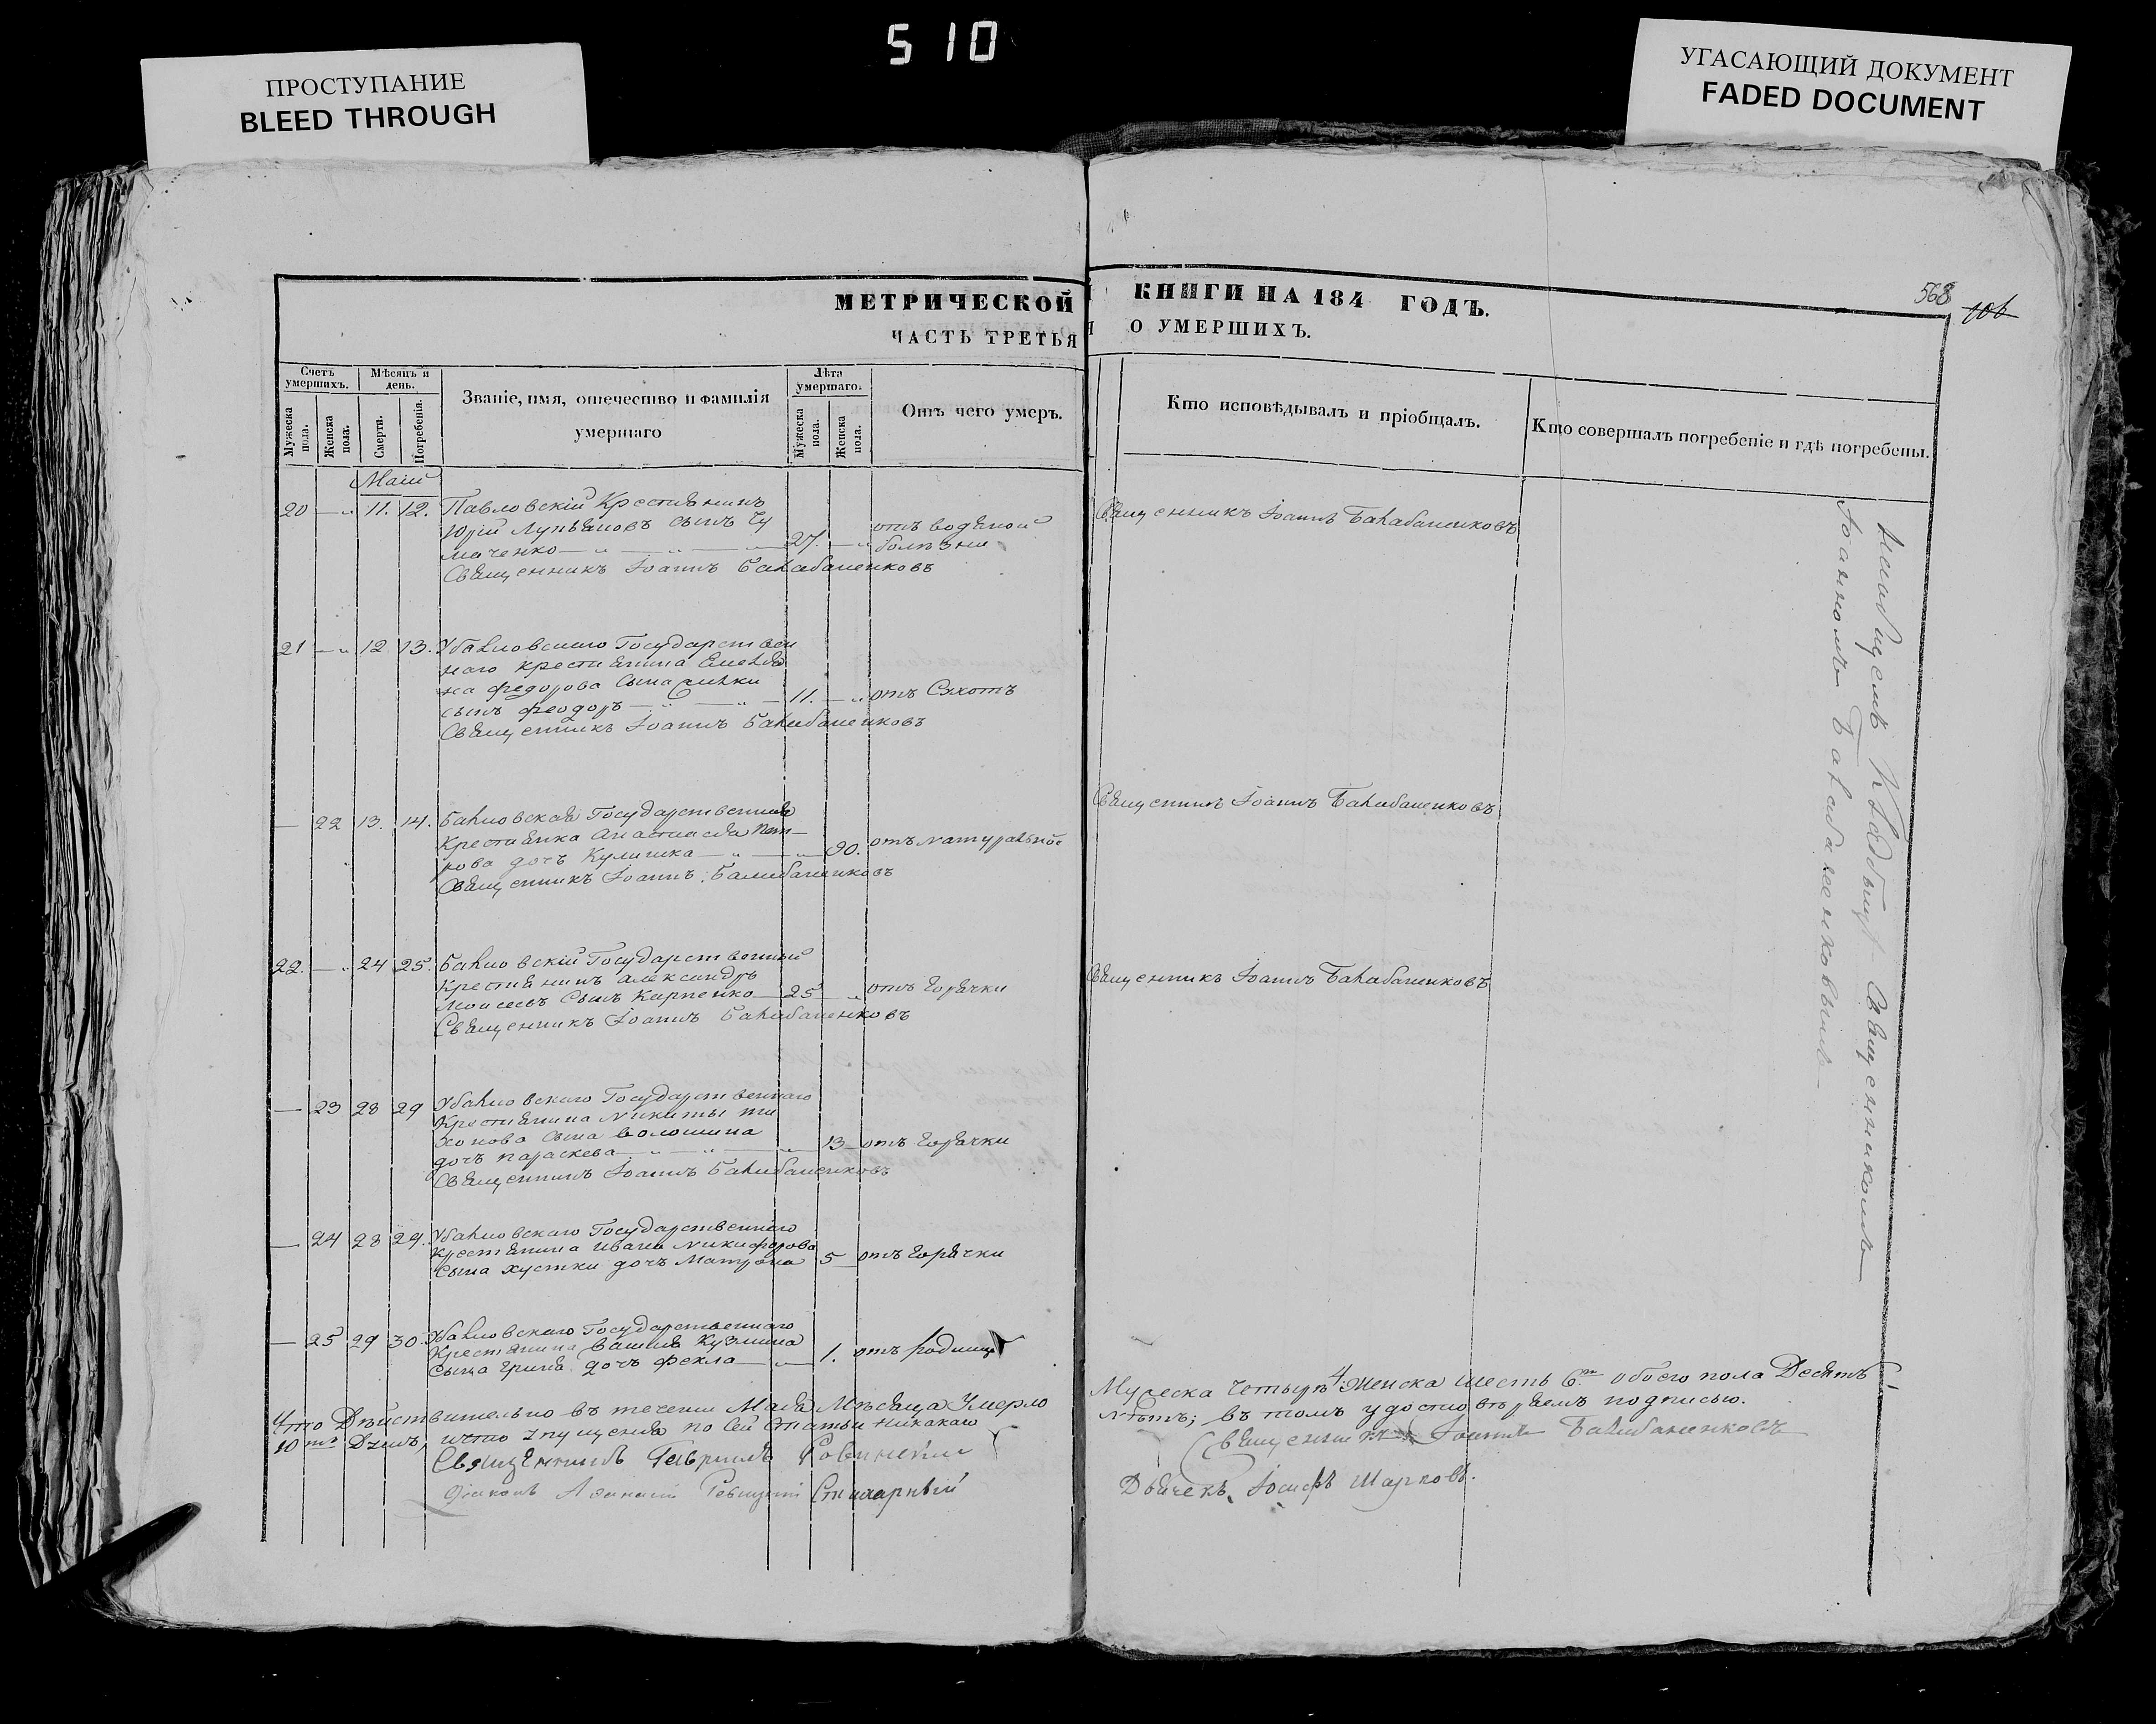 510
ПРОСТУПАНИЕ
BLEED THROUGH
УГАСАЮЩИЙ ДОКУМЕНТ
FADED DOCUMENT
568
106
МЕТРИЧЕСКОЙ КНИГИ НА 184 ГОДЪ.
ЧАСТЬ ТРЕТЬЯ О УМЕРШИХЪ.
Счетъ умершихъ.
Мужеска пола.
Женска пола.
Мѣсяцъ и день.
Смерти.
Погребенія.
Званіе, имя, отечество и фамилія умершаго
Лѣта умершаго.
Мужеска пола.
Женска пола.
Отъ чего умеръ.
Кто исповѣдывалъ и пріобщалъ.
Кто совершалъ погребеніе и гдѣ погребены.
Маій
20 — „ 11. 12. Павловскій Крестьянинъ
Юрій Лукьяновъ сынъ Чу
маченко 27. — „ отъ водяной болѣзни
Священникъ Іоаннъ Балабаненковъ
Священникъ Іоаннъ Балабаненковъ
21 — „ 12 13. Государствен
наго крестьянина
на Федорова сына
сынъ Феодоръ 11. — „ отъ Сухотъ
Священникъ Іоаннъ Балабаненковъ
— 22 13. 14. Государственная
Крестьянка Анастасія Пет-
рова дочь Кулишка 90. отъ натуральной
Священникъ Іоаннъ Балабаненковъ
Священникъ Іоаннъ Балабаненковъ
22. — „ 24 25. Государственный
Крестьянинъ Александръ
Моисеевъ Сынъ Карпенко 25 „ отъ горячки
Священникъ Іоаннъ Балабаненковъ
Священникъ Іоаннъ Балабаненковъ
— 23 28 29 Государственнаго
Крестьянина Никиты Ти
хонова сына Волошина
дочь Параскева 13 отъ горячки
Священникъ Іоаннъ Балабаненковъ
— 24 28 29. Государственнаго
Крестьянина Ивана Никифорова
сына Хустки дочь Матрона 5 отъ горячки
— 25 29 30. Государственнаго
Крестьянина Василія Кузмина
сына дочь Фекла 1. отъ родимца
на кладбищѣ Священникомъ
Іоанномъ Балабаненковымъ
Что Дѣйствительно въ теченіи Мая Мѣсяца Умерло Мужеска Четыре 4. Женска шесть 6. обоего пола Десять
10 Душъ, что упущенія по сей Статьи никакаго нѣтъ; въ томъ удостовѣряемъ подписью.
Священникъ Гавріилъ
Священникъ Іоаннъ Балабаненковъ
Діаконъ
Дьячекъ Іосифъ Шарковъ.